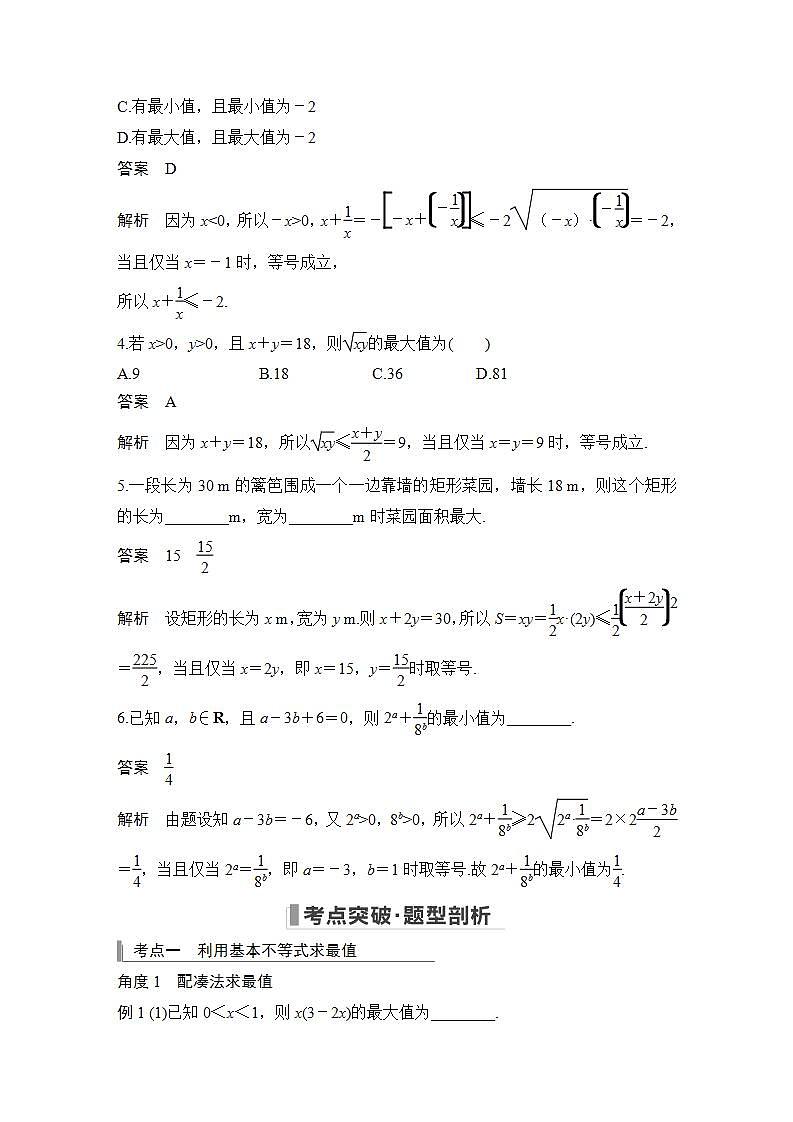 C.有最小值，且最小值为－2
D.有最大值，且最大值为－2
答案　D
解析　因为 x<0，所以－x>0，x＋\frac{1}{x}＝－[－x＋(－\frac{1}{x})]≤－2\sqrt{（－x）·(－\frac{1}{x})}＝－2，
当且仅当 x＝－1 时，等号成立，
所以 x＋\frac{1}{x}≤－2.
4.若 x>0，y>0，且 x＋y＝18，则\sqrt{xy}的最大值为(　　)
A.9　B.18　C.36　D.81
答案　A
解析　因为 x＋y＝18，所以\sqrt{xy}≤\frac{x＋y}{2}＝9，当且仅当 x＝y＝9 时，等号成立.
5.一段长为 30 m 的篱笆围成一个一边靠墙的矩形菜园，墙长 18 m，则这个矩形
的长为________m，宽为________m 时菜园面积最大.
答案　15　\frac{15}{2}
解析　设矩形的长为 x m，宽为 y m.则 x＋2y＝30，所以 S＝xy＝\frac{1}{2}x·(2y)≤\frac{1}{2}(\frac{x＋2y}{2})2
＝\frac{225}{2}，当且仅当 x＝2y，即 x＝15，y＝\frac{15}{2}时取等号.
6.已知 a，b∈R，且 a－3b＋6＝0，则 2^a＋\frac{1}{8^b}的最小值为________.
答案　\frac{1}{4}
解析　由题设知 a－3b＝－6，又 2^a>0，8^b>0，所以 2^a＋\frac{1}{8^b}≥2\sqrt{2^a·\frac{1}{8^b}}＝2×2\frac{a－3b}{2}
＝\frac{1}{4}，当且仅当 2^a＝\frac{1}{8^b}，即 a＝－3，b＝1 时取等号.故 2^a＋\frac{1}{8^b}的最小值为\frac{1}{4}.
考点突破·题型剖析
考点一　利用基本不等式求最值
角度 1　配凑法求最值
例 1 (1)已知 0＜x＜1，则 x(3－2x)的最大值为________.